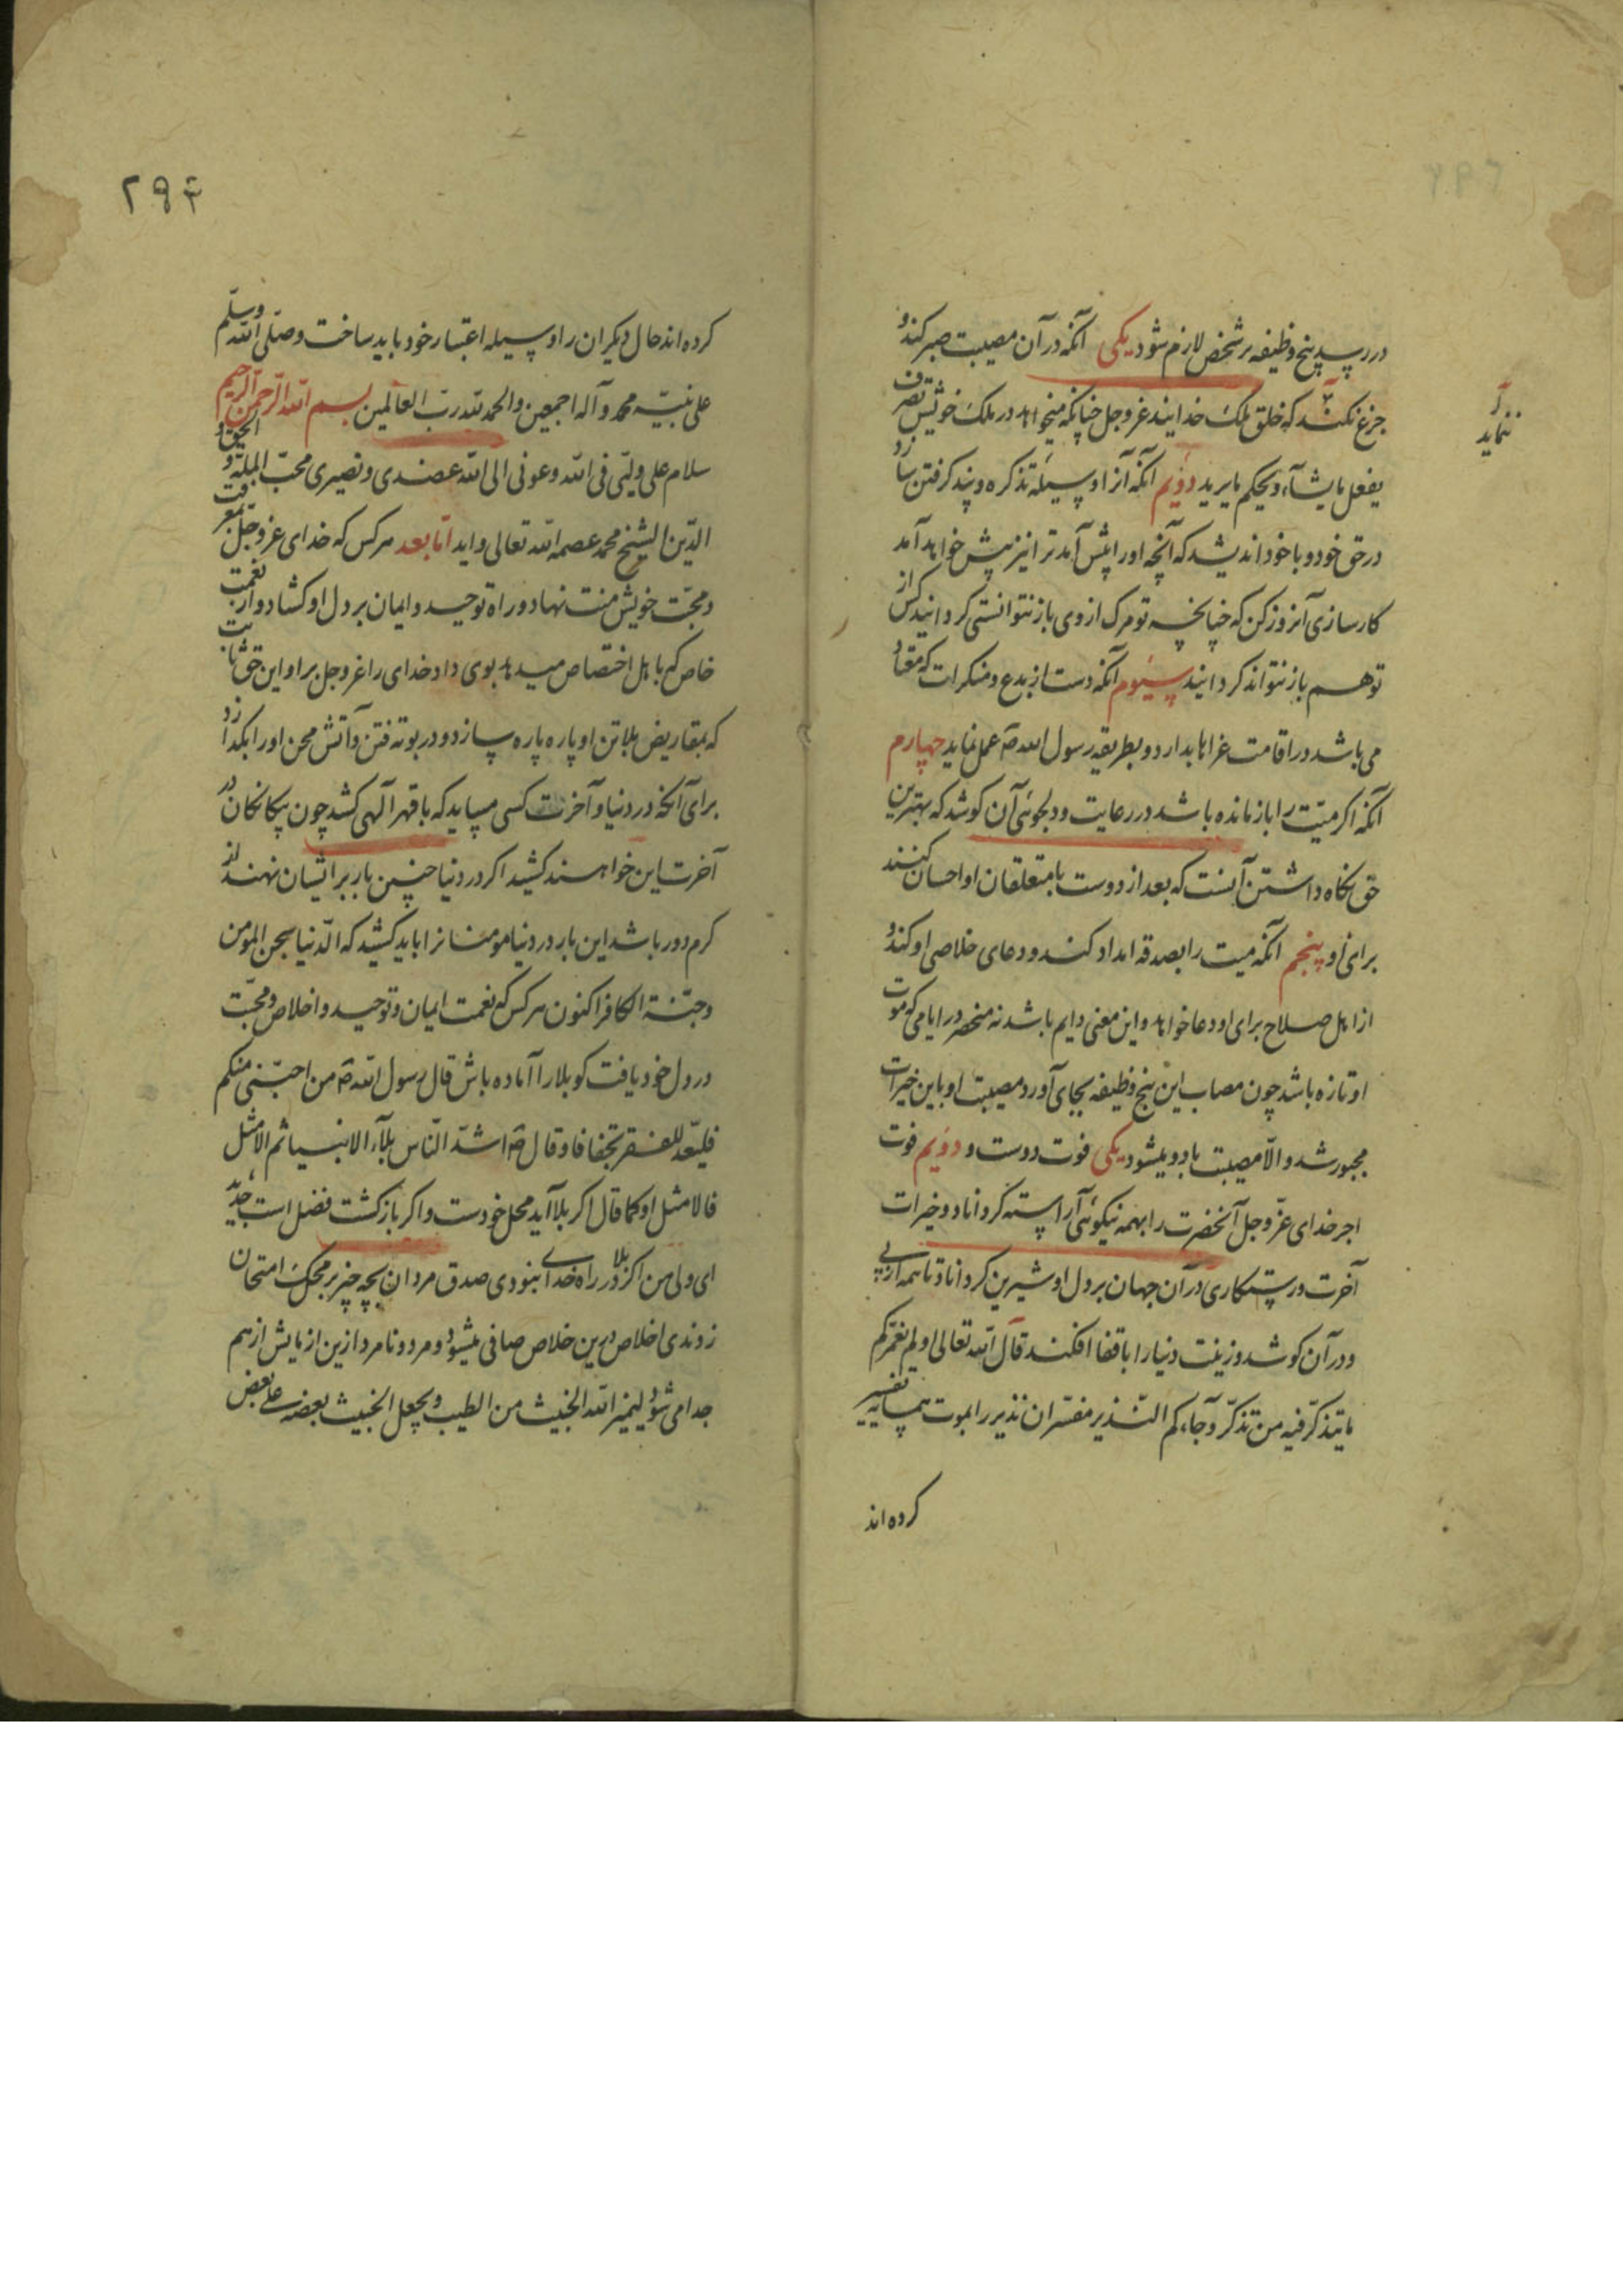 در رسید پنج وظیفه بر شخص لازم شود یکی آنکه در آن مصیبت صبر کند و
جزع نکند که خلق ملک خدایند عز و جل چنانکه میخواهد در ملک خویش تصرف
نماید
یفعل ما یشآء و یحکم ما یرید دویم آنکه آنرا وسیلهٔ تذکره و پند گرفتن سازد
در حق خود و با خود اندیشد که آنچه او را پیش آمد ترا نیز پیش خواهد آمد
کارسازی آنروز کن که چنانچه تو مرگ از وی باز نتوانستی گردانید کس از
تو هم باز نتواند گردانید سیوم آنکه دست از بدع و منکرات که معتاد
می باشد در اقامت عزاها بدارد و بطریقه رسول الله ص عمل نماید چهارم
آنکه اگر میّت را بازمانده باشد در رعایت و دلجوئی آن کوشد که بهترین
حق نگاه داشتن آنست که بعد از دوست با متعلقان او احسان کنند
برای او پنجم آنکه میت را بصدقه امداد کند و دعای خلاصی او کند و
از اهل صلاح برای او دعا خواهد و این معنی دایم باشد نه منحصر در ایامی که موت
او تازه باشد چون مصاب این پنج وظیفه بجای آورد مصیبت او باین خیرات
مجبور شد و الّا مصیبت با دو میشود یکی فوت دوست و دویم فوت
اجر خدای عزّ و جل آنحضرت را بهمه نیکوئی آراسته گرداناد و خیرات
آخرت و رستکاری در آن جهان بر دل او شیرین گرداناد تا همه از پی
و در آن کوشد و زینت دنیا را با قفا افکند قال الله تعالی اولم نعمّرکم
ما یتذکّر فیه من تذکّر و جآءکم النّذیر مفسّران نذیر را بموت همسایه تفسیر
کرده اند
۲۹۴
کرده اند حال دیکران را وسیله اعتبار خود باید ساخت و صلّی الله وسلّم
علی نبیّه محمد و آله اجمعین والحمد لله ربّ العالمین بسم الله الرّحمن الرّحیم
سلام علی ولیّی فی الله و عونی الی الله عضدی و نصیری محبّ الملّة و الحق و
الدّین الشیخ محمد عصمه الله تعالی و اید امّا بعد هر کس که خدای عز و جلّ بمعرفت
و محبّت خویش منت نهاد و راه توحید و ایمان بر دل او کشاد و از نعمت
خاص که با اهل اختصاص میدهد بوی داد خدای را عز و جل بر او این حق ثابت
که بمقاریض بلا تن او پاره پاره سازد و در بوته فتن و آتش محن او را بگدازد
برای آنکه در دنیا و آخرت کسی میباید که با قهر آلهی کشد چون بیکانکان در
آخرت این خواهند کشید اگر در دنیا چنین بار بر ایشان نهند از
کرم دور باشد این بار در دنیا مومنانرا باید کشید که الدّنیا سجن المومن
و جنّة الکافر اکنون هر کس که نعمت ایمان و توحید و اخلاص و محبّت
در دل خود یافت کو بلا را آماده باش قال رسول الله ص من احبّنی منکم
فلیعدّ للفقر تجفافا و قال ص اشدّ النّاس بلآء الانبیا ثم الامثل
فالامثل او کما قال اگر بلا آید محل خودست و اگر باز گشت فضل است جدید
ای ولی من اگر بلا در راه خدای نبودی صدق مردان بچه چیز بر محک امتحان
زدندی اخلاص درین خلاص صافی میشود و مرد و نامرد ازین ازمایش از هم
جدا می شود لیمیز الله الخبیث من الطیب و یجعل الخبیث بعضه علی بعض